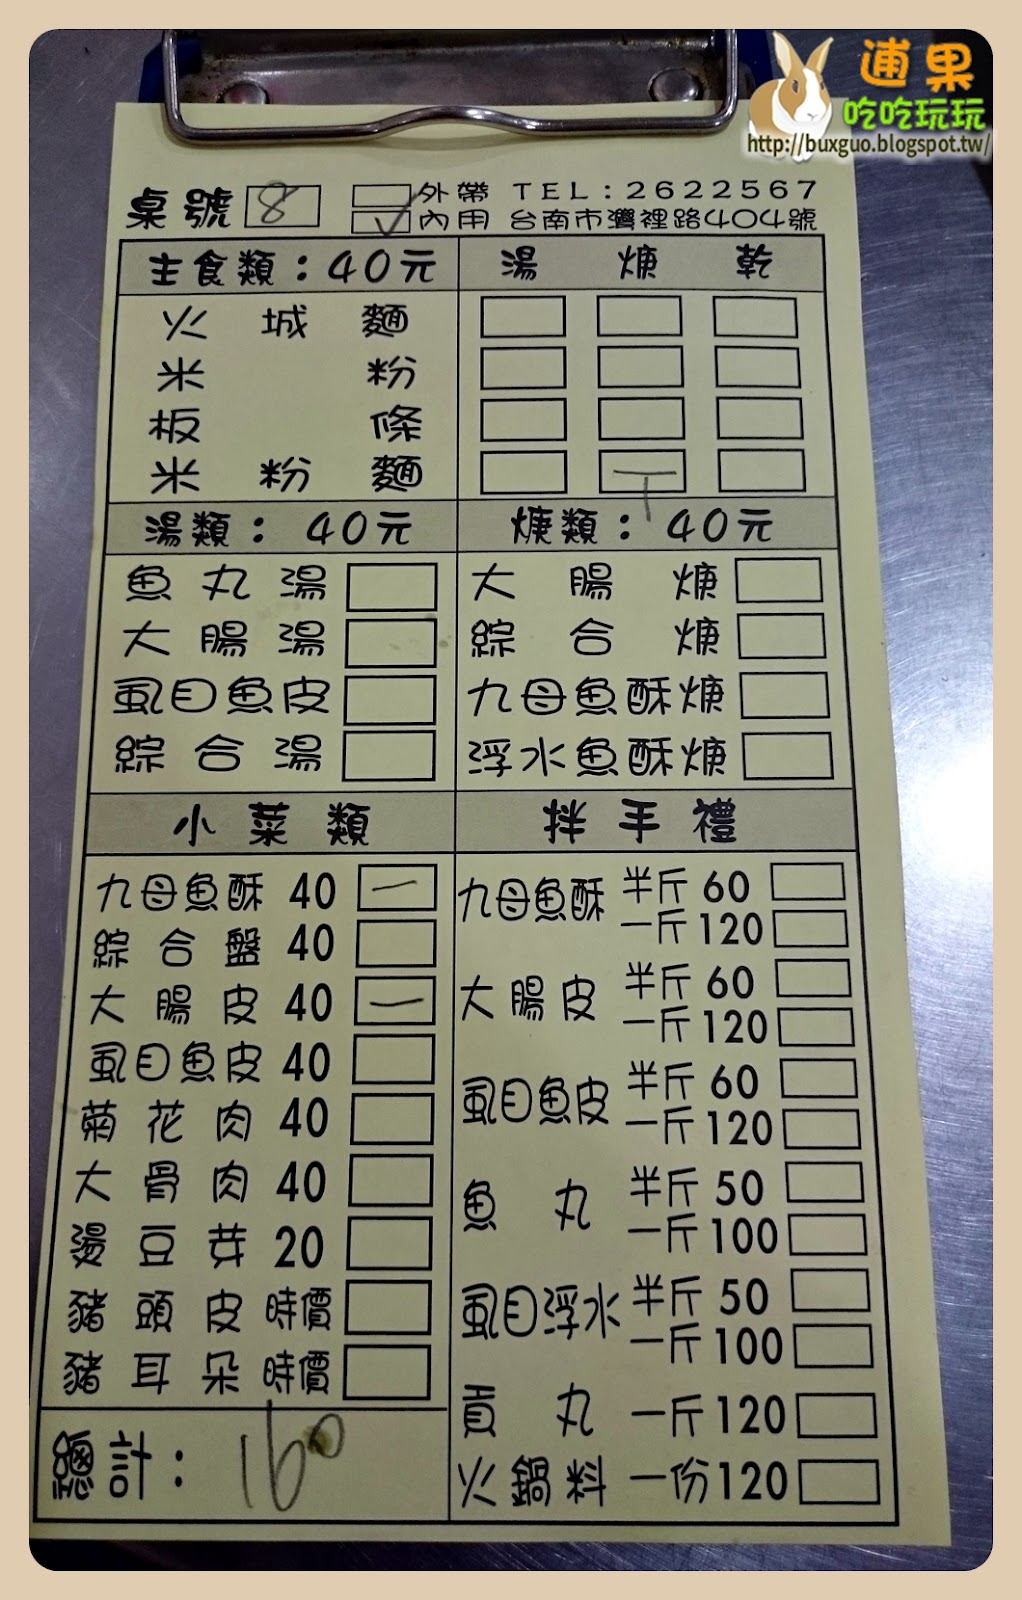 逋果
吃吃玩玩
http://buxguo.blogspot.tw/
桌號 8 外帶 TEL:2622567
✓ 內用 台南市灣裡路404號
主食類:40元 湯 焿 乾
火城麵
米粉
板條
米粉麵 T
湯類:40元 焿類:40元
魚丸湯 大腸焿
大腸湯 綜合焿
虱目魚皮 九母魚酥焿
綜合湯 浮水魚酥焿
小菜類 拌手禮
九母魚酥 40 一
綜合盤 40
大腸皮 40 一
虱目魚皮 40
菊花肉 40
大骨肉 40
燙豆芽 20
豬頭皮 時價
豬耳朵 時價
總計: 160
九母魚酥 半斤 60
一斤 120
大腸皮 半斤 60
一斤 120
虱目魚皮 半斤 60
一斤 120
魚丸 半斤 50
一斤 100
虱目浮水 半斤 50
一斤 100
貢丸 一斤 120
火鍋料 一份 120